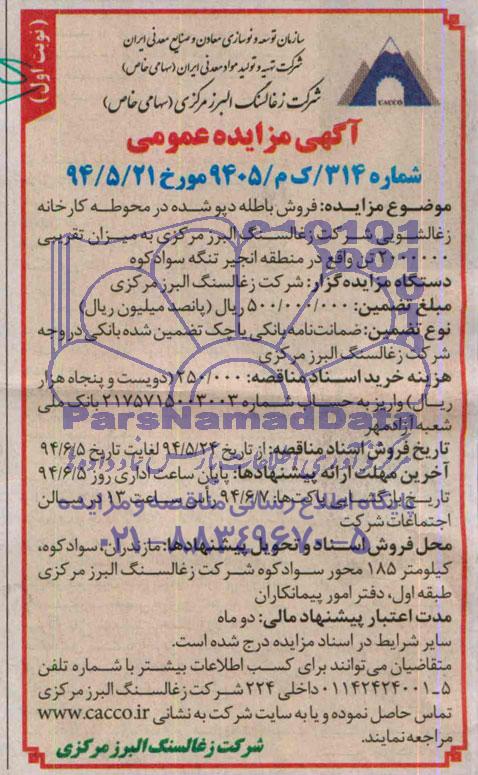 (نوبت اول)
سازمان توسعه و نوسازی معادن و صنایع معدنی ایران
شرکت تهیه و تولید مواد معدنی ایران (سهامی خاص)
شرکت زغالسنگ البرز مرکزی (سهامی خاص)
CACCO
آگهی مزایده عمومی
شماره ۳۱۴/ک م/۹۴۰۵ مورخ ۹۴/۵/۲۱
موضوع مزایده: فروش باطله دپو شده در محوطه کارخانه
زغالشویی شرکت زغالسنگ البرز مرکزی به میزان تقریبی
تن واقع در منطقه انجیر تنگه سوادکوه
دستگاه مزایده گزار: شرکت زغالسنگ البرز مرکزی
مبلغ تضمین: ۵۰۰/۰۰۰/۰۰۰ ریال (پانصد میلیون ریال)
نوع تضمین: ضمانت‌نامه بانکی یا چک تضمین شده بانکی در وجه
شرکت زغالسنگ البرز مرکزی
هزینه خرید اسناد مناقصه: ۲۵۰/۰۰۰ (دویست و پنجاه هزار
ریال) واریز به حساب شماره ۲۱۷۵۷۱۵۰۰۳۰۰۳ بانک ملی
شعبه آزادمهر
تاریخ فروش اسناد مناقصه: از تاریخ ۹۴/۵/۲۴ لغایت تاریخ ۹۴/۶/۵
آخرین مهلت ارائه پیشنهادها: پایان ساعت اداری روز ۹۴/۶/۵
تاریخ بازگشایی پاکت‌ها: ۹۴/۶/۷ رأس ساعت ۱۳ در سالن
اجتماعات شرکت
محل فروش اسناد و تحویل پیشنهادها: مازندران، سوادکوه،
کیلومتر ۱۸۵ محور سوادکوه شرکت زغالسنگ البرز مرکزی
طبقه اول، دفتر امور پیمانکاران
مدت اعتبار پیشنهاد مالی: دو ماه
سایر شرایط در اسناد مزایده درج شده است.
متقاضیان می‌توانند برای کسب اطلاعات بیشتر با شماره تلفن
۵-۰۱۱۴۲۴۲۴۰۰۱ داخلی ۲۲۴ شرکت زغالسنگ البرز مرکزی
تماس حاصل نموده و یا به سایت شرکت به نشانی www.cacco.ir
مراجعه نمایند.
شرکت زغالسنگ البرز مرکزی
ParsNamadData
پایگاه اطلاع رسانی مناقصه و مزایده
۰۲۱-۸۸۳۴۹۶۷۰-۵